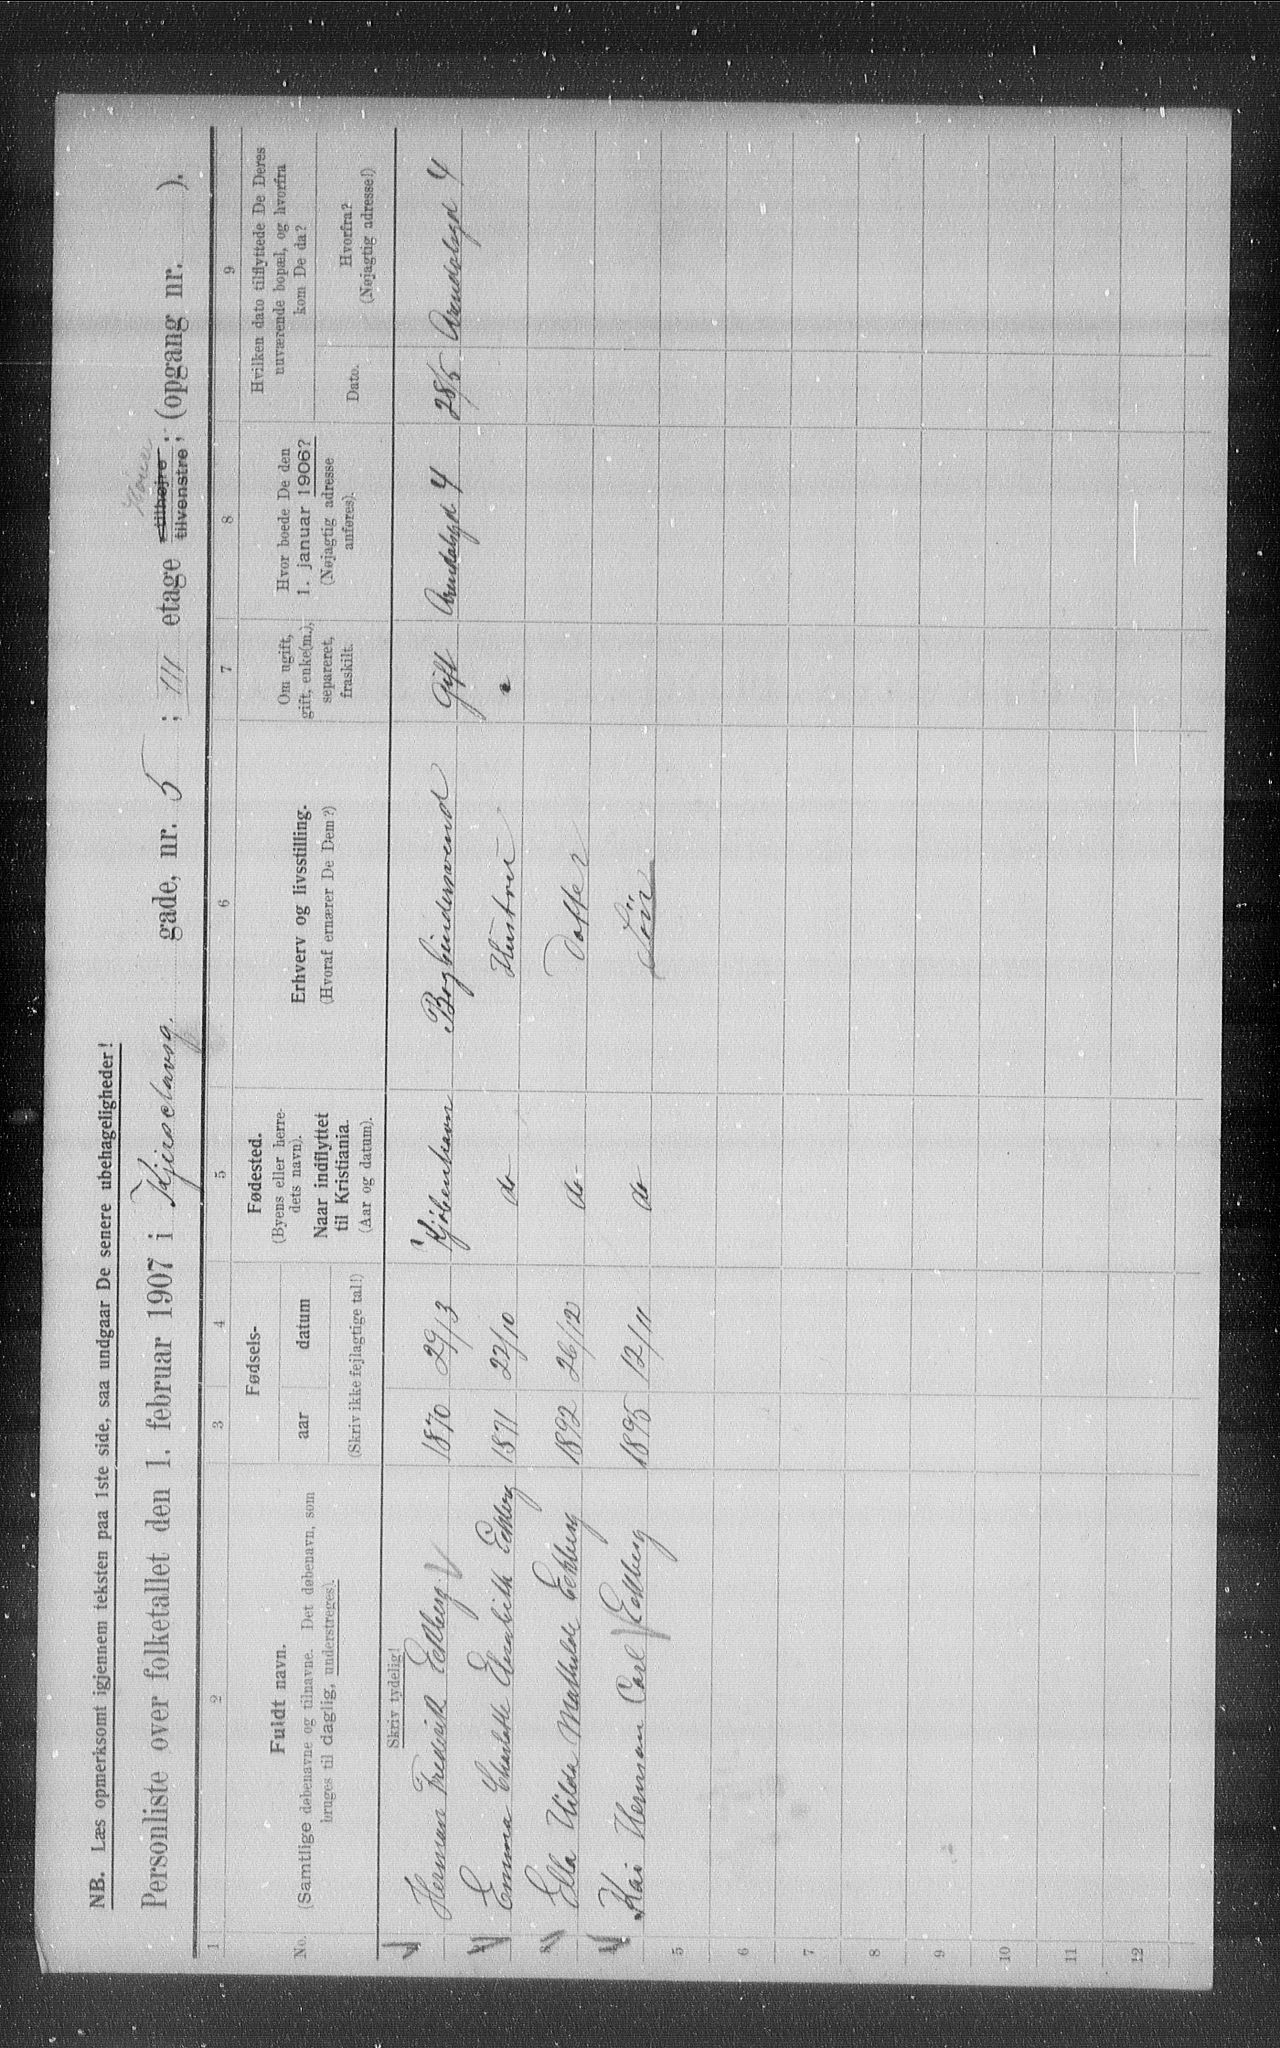 NB. Læs opmerksomt igjennem teksten paa 1ste side, saa undgaar De senere ubehageligheder!
Personliste over folketallet den 1. februar 1907 i Kjierschowsg. gade, nr. 5 ; III etage tilhøjre tilvenstre ; (opgang nr. ).
1 2 3 4 5 6 7 8 9
No.
Fuldt navn.
(Samtlige døbenavne og tilnavne. Det døbenavn, som
bruges til daglig, understreges).
Fødsels-
aar datum
(Skriv ikke fejlagtige tal!)
Fødested.
(Byens eller herre-
dets navn).
Naar indflyttet
til Kristiania.
(Aar og datum).
Erhverv og livsstilling.
(Hvoraf ernærer De Dem?)
Om ugift,
gift, enke(m.),
separeret,
fraskilt.
Hvor boede De den
1. januar 1906?
(Nøjagtig adresse
anføres).
Hvilken dato tilflyttede De Deres
nuværende bopæl, og hvorfra
kom De da?
Dato.
Hvorfra?
(Nøjagtig adresse!)
Skriv tydelig!
Herman Fredrik Eckberg 1870 29/3 Kjöbenhavn Bogbindersvend Gift Arendalsgd 4 28/5 Arendalsgd 4
Emma Charlotte Elisabeth Eckberg 1871 22/10 do Hustru "
Ella Hilda Mathilde Eckberg 1892 26/12 do Datter
Kai Herman Carl Eckberg 1895 12/11 do Sön
5
6
7
8
9
10
11
12